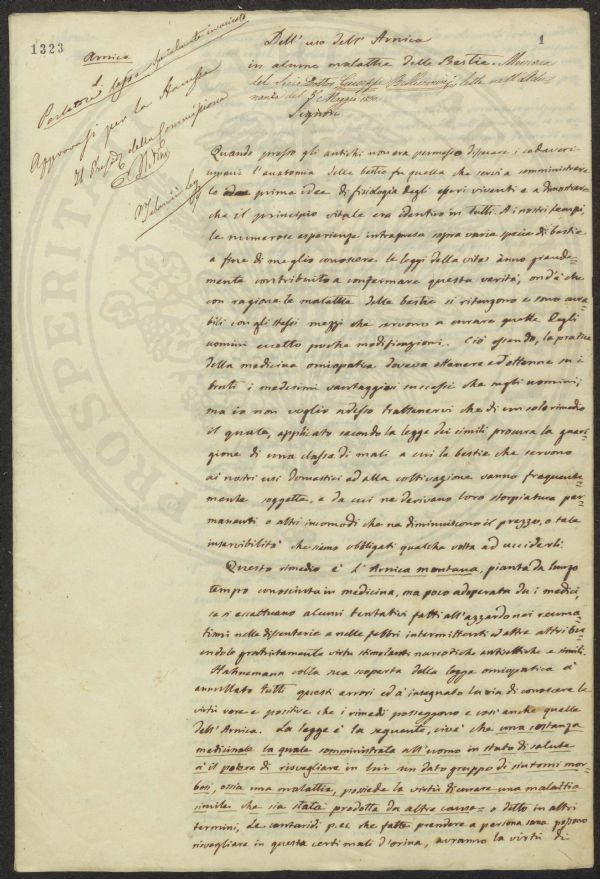 1323
1
Arnica
Parlatore legga specialmente incaricato
Approvasi per la Stampa
Il Presid.e della Commissione
Dell' uso dell' Arnica
in alcune malattie delle Bestie. Memoria
del Socio Dottor Giuseppe letta nell'Adu-
nanza del Maggio
Signori
Quando presso gli antichi non era permesso disecare i cadaveri
umani l'anatomia delle bestie fu quella che servì a somministrare
le prime idee di fisiologia degli esseri viventi e a dimostrare
che il principio vitale era identico in tutti. Ai nostri tempi,
le numerose esperienze intraprese sopra varie specie di bestie
a fine di meglio conoscere le leggi della vita ànno grande-
mente contribuito a confermare questa verità, ond'è che
con ragione le malattie delle bestie si ritengono e sono cura-
bili con gli stessi mezzi che servono a curare quelle degli
uomini eccetto poche modificazioni. Ciò essendo, la pratica
della medicina omiopatica doveva ottenere ed ottenne su i
bruti i medesimi vantaggiosi successi che negli uomini;
ma io non voglio adesso trattenervi che di un solo rimedio
il quale, applicato secondo la legge dei simili procura la guari-
gione di una classe di mali a cui le bestie che servono
ai nostri usi domestici ed alla coltivazione vanno frequente-
mente soggette, e da cui ne derivano loro storpiature per-
manenti o altri incomodi che ne diminuiscono il prezzo, o tale
inservibilità che siamo obbligati qualche volta ad ucciderli.
Questo rimedio è l'Arnica montana, pianta da lungo
tempo conosciuta in medicina, ma poco adoperata da i medici,
se si eccettuano alcuni tentativi fatti all'azzardo nei reuma-
tismi nelle dissenterie e nelle febbri intermittenti ed altre attribu-
endole gratuitamente virtù stimolanti narcotiche antisettiche e simili.
Hahnemann colla sua scoperta della legge omiopatica à
annullato tutti questi errori ed à insegnato la via di conoscere le
virtù vere e positive che i rimedi posseggono e così anche quelle
dell'Arnica. La legge è la seguente, cioè che una sostanza
medicinale la quale somministrata all'uomo in stato di salute
à il potere di risvegliare in lui un dato gruppo di sintomi mor-
bosi, ossia una malattia, possiede la virtù di curare una malattia
simile che sia stata prodotta da altre cause o detto in altri
termini, Le cantaridi p.es. che fatte prendere a persona sana possono
risvegliare in questa certi mali d'orina, avranno la virtù di